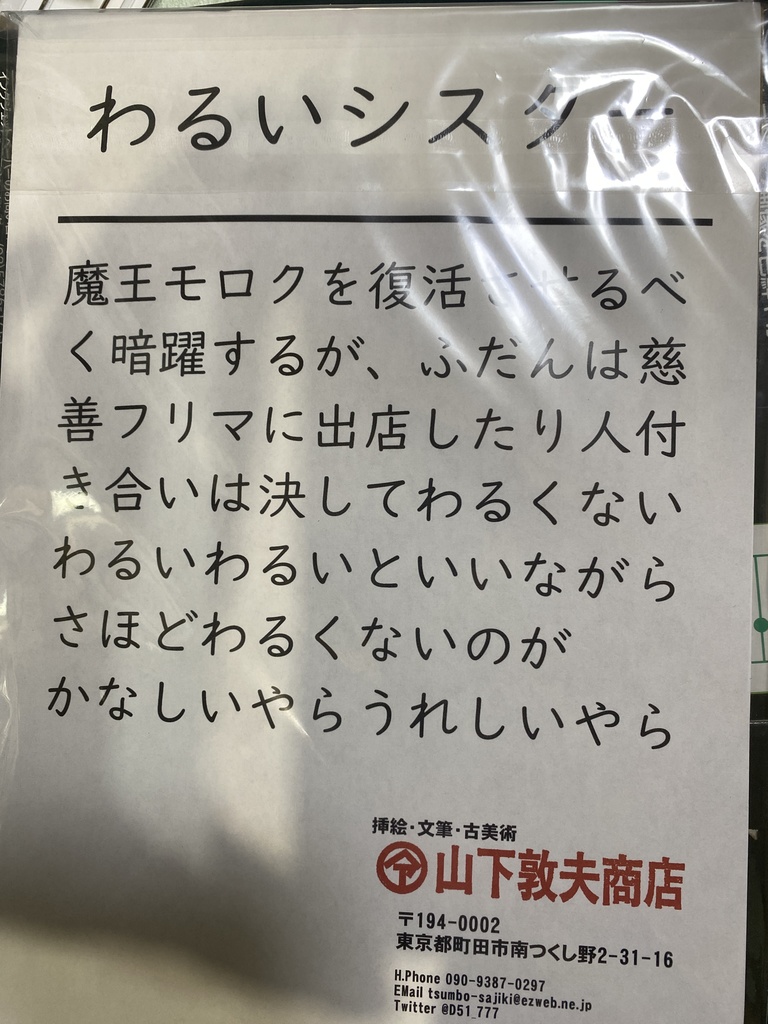 わるいシスター
魔王モロクを復活させるべ
く暗躍するが、ふだんは慈
善フリマに出店したり人付
き合いは決してわるくない
わるいわるいといいながら
さほどわるくないのが
かなしいやらうれしいやら
挿絵・文筆・古美術
山下敦夫商店
〒194-0002
東京都町田市南つくし野2-31-16
H.Phone 090-9387-0297
EMail tsumbo-sajiki@ezweb.ne.jp
Twitter @D51_777